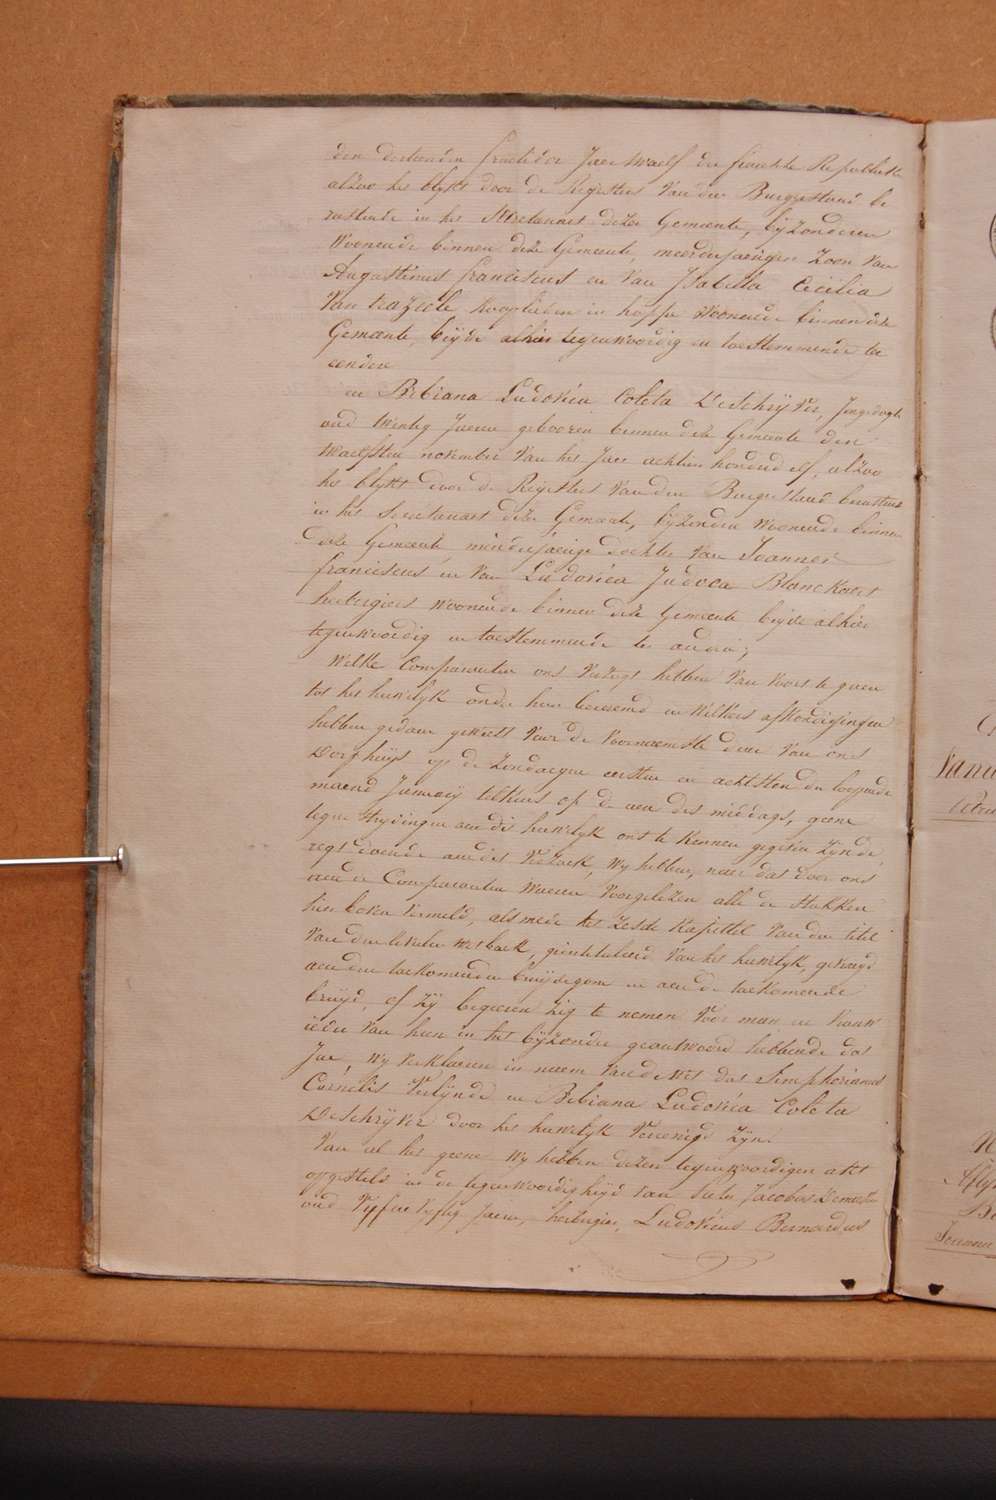 den dertienden fructidor Jaer twaelf der fransche Republieke
alzoo het blykt door de Registers van den Burgerstand be
rustende in het Secretariaet dezer Gemeente, byzonderen
woonende binnen deze Gemeente, meerderjaerigen Zoon van
Augustinus franciscus en van Isabella Cecilia
Van kooplieden in hoppe woonende binnen deze
Gemeente, beÿde alhier tegenwoordig en toestemmende ter
eendere
en Bibiana Ludovica Coleta DeschrÿVer, Jongedogter
oud twintig Jaeren gebooren binnen deze Gemeente den
twaelfsten november van het Jaer achtien honderd elf, alzoo
het blykt door de Registers van den Burgerstand berustende
in het Secretariaet dezer Gemeente, byzondere woonende binnen
deze Gemeente, minderjaerige dochter van Joannes
franciscus en van Ludovica Judoca Blanckaert
herbergiers woonende binnen deze Gemeente beÿde alhier
tegenwoordig en toestemmende ter andere;
Welke Comparanten ons verzogt hebben van voort te gaen
tot het huwelyk onder hun beraemd en welkers afkondigingen
hebben gedaen geweest voor de voornaemste deur van ons
Dorphuys op de Zondaegen eersten en achtsten der loopende
maend January telkens op de uer des middags, geene
tegenstrydingen aen dit huwelyk ons te kennen gegeven zÿnde,
regt doende aen dit verzoek, wy hebben, naer dat door ons
aen de Comparanten waeren voorgelezen alle de stukken
hier boven vermeld, als mede het zesde Kapittel van den titel
van den wetboek, geintituleerd van het huwelyk, gevraegd
aen den toekomenden bruydegom en aen de toekomende
bruyd, of zÿ begeeren zig te nemen voor man en vrouw
ieder van hun in het byzonder geantwoord hebbende dat
Jae, wy verklaeren in naem van de wet dat Simphorianus
Cornelis en Bibiana Ludovica Coleta
DeschrÿVer door het huwelyk vereenigd zÿn.
Van al het geene wy hebben dezen tegenwoordigen akt
opgesteld in de tegenwoordigheyd van Pieter Jacobus
oud vyf en vyftig Jaeren, herbergier, Ludovicus Bernardus